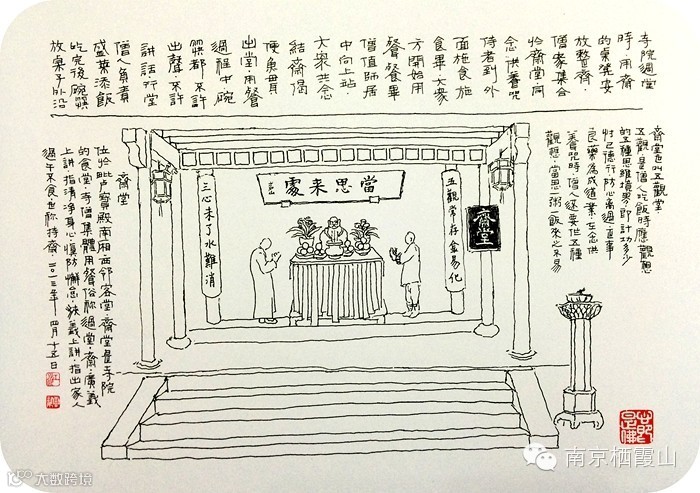 寺院過堂
時,用齋
的桌凳安
放整齊,
僧眾集合
於齋堂同
念供養咒
侍者到外
面施食,施
食畢,大眾
方開始用
餐,餐畢
僧值師居
中向上站
大眾共念
結齋偈
便魚貫
出堂,用餐
過程中碗
筷都不許
出聲,不許
講話,行堂
僧人負責
盛菜添飯
吃完後碗筷
放桌子外沿
齋堂也叫五觀堂
五觀是僧人吃飯時應觀想
的五種思維境界,即計功多少
忖己德行防心离過,正事
良藥為成道業,在念供
養咒時,僧還要作五種
觀想,當思一粥一飯來之不易
當思来處
五觀常存金易化
三心未了水難消
齋堂
齋堂
位於毗盧寶殿南廂,西鄰客堂,齋堂是寺院
的食堂,寺僧集體用餐俗称過堂,齋,廣義
上講,指清净身心慎防懈怠,狹義上講,指出家人
過午不食也称持齋,二〇一三年 四月十五日
大数跨境
南京栖霞山